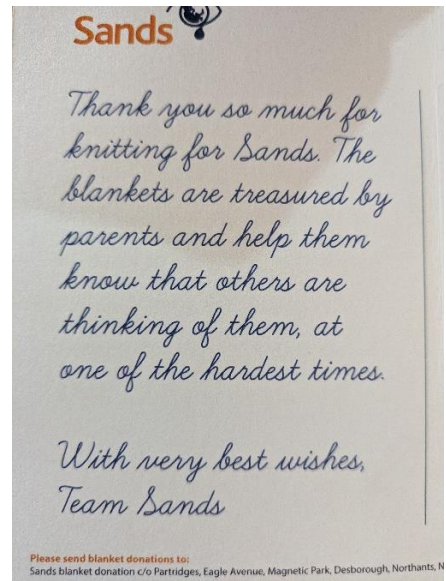 Sands
Thank you so much for
knitting for Sands. The
blankets are treasured by
parents and help them
know that others are
thinking of them, at
one of the hardest times.
With very best wishes,
Team Sands
Please send blanket donations to:
Sands blanket donation c/o Partridges, Eagle Avenue, Magnetic Park, Desborough, Northants,